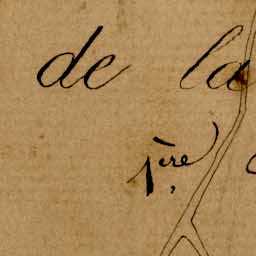 de la
1ère